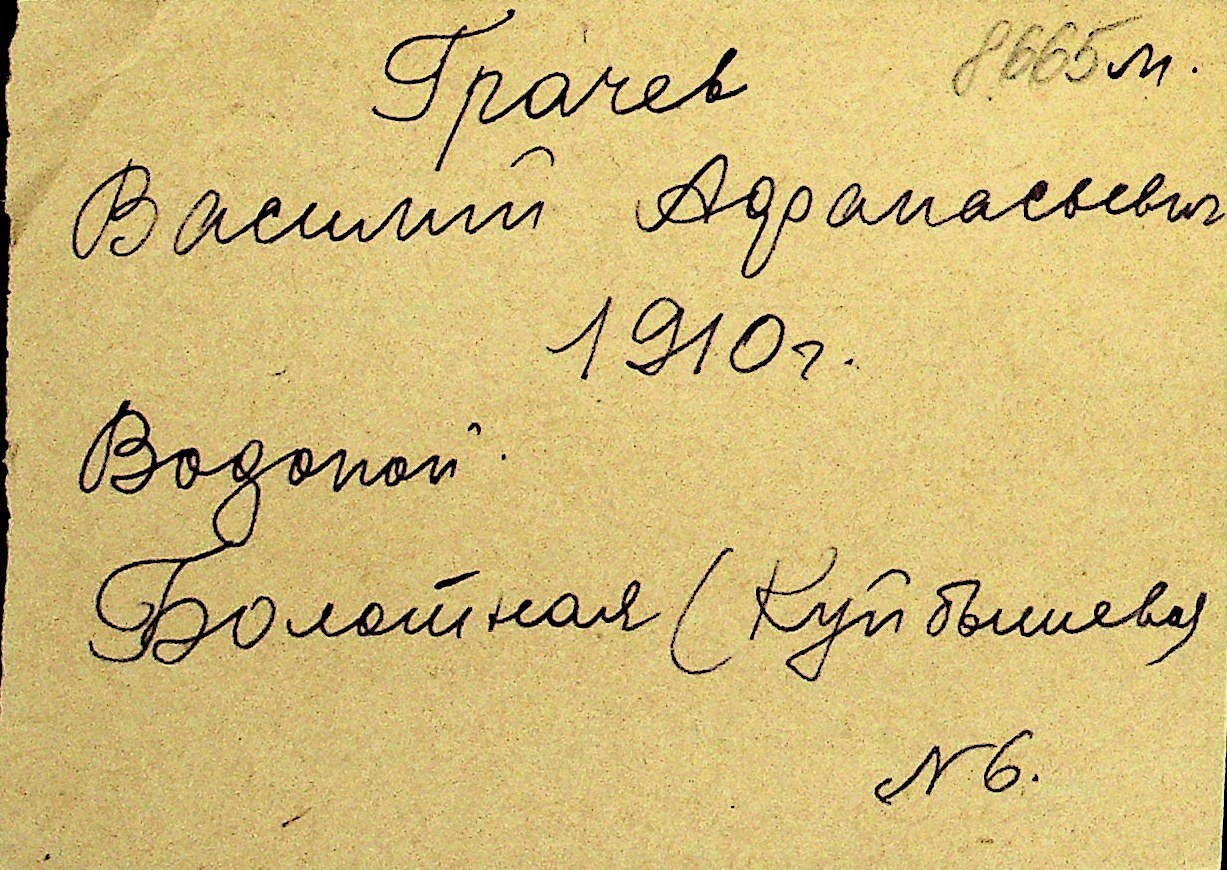 8665 м.
Грачев
Василий Афанасьевич
1910 г.
Водопой.
Болотная (Куйбышева)
N 6.